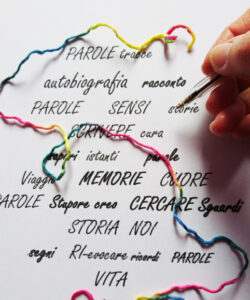 PAROLE tracce
autobiografia racconto
PAROLE SENSI storie
SCRIVERE cura
sapori istanti parole
Viaggio MEMORIE CUORE
PAROLE Stupore creo CERCARE Sguardi
STORIA NOI
segni RI-evocare ricordi PAROLE
VITA